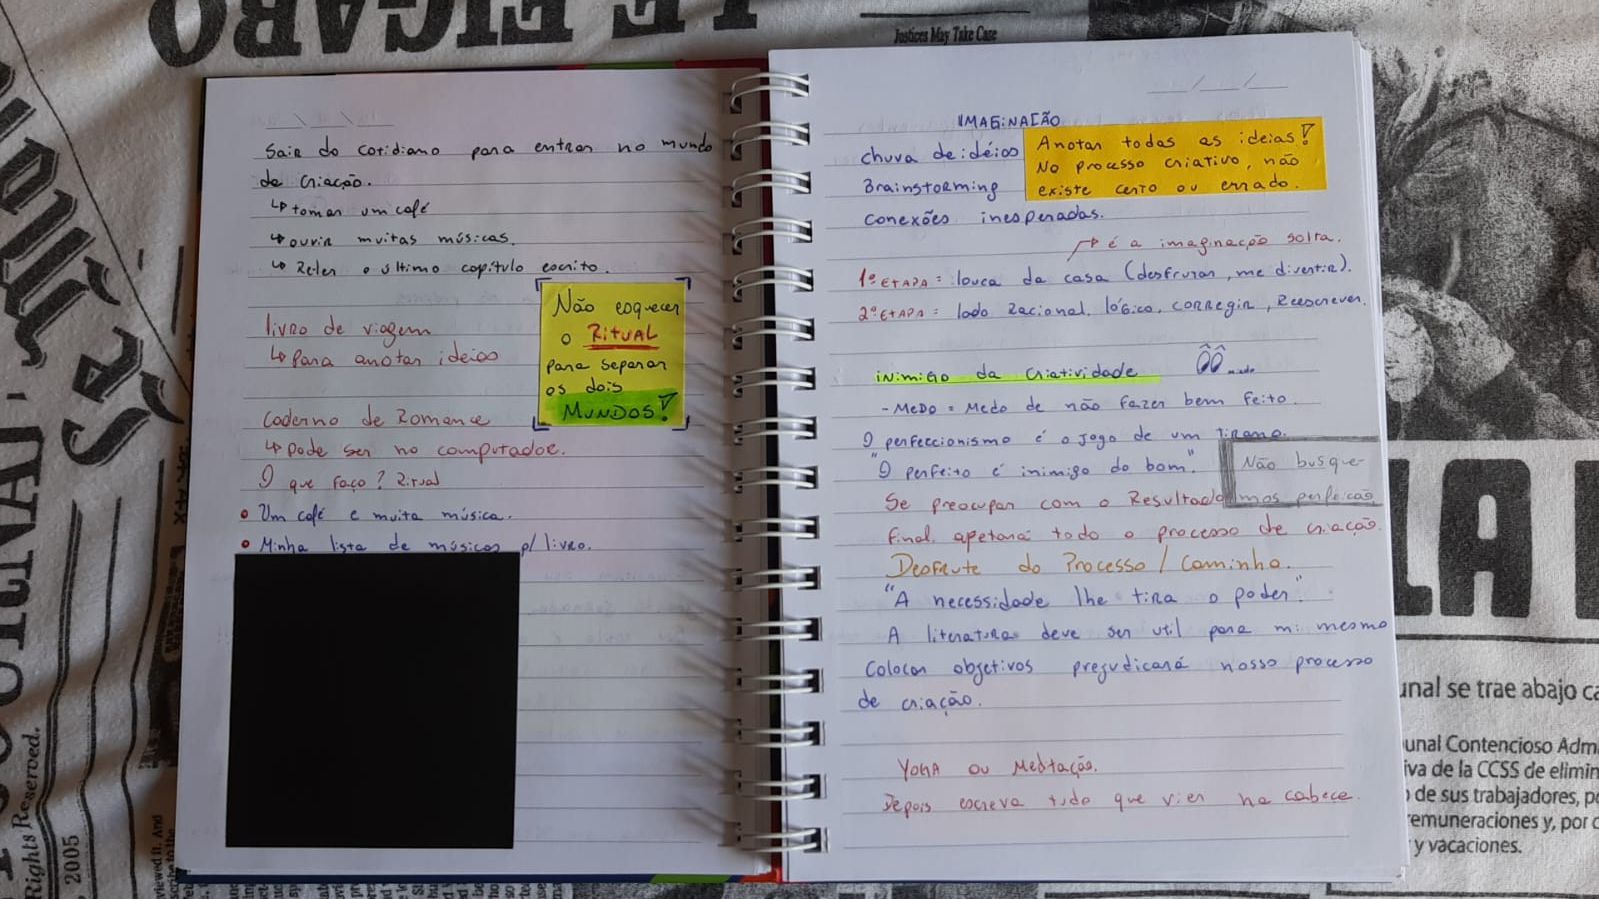 LE FIGARO
Justices May Take Case
Sair do cotidiano para entrar no mundo
de criação.
↳ tomar um café
↳ ouvir muitas músicas.
↳ Reler o último capítulo escrito.
livro de viagem
↳ para anotar ideias
Não esquecer
o RITUAL
para separar
os dois
MUNDOS!
caderno de Romance
↳ Pode ser no computador.
O que faço? Ritual
• Um café e muita música.
• Minha lista de músicas p/ livro.
IMAGINAÇÃO
chuva de idéias
Brainstorming
conexões inesperadas.
Anotar todas as ideias!
No processo criativo, não
existe certo ou errado.
↱ é a imaginação solta.
1ª ETAPA = louca da casa (desfrutar, me divertir).
2ª ETAPA = lado racional, lógico, corregir, Reescrever.
inimigo da criatividade
...medo
- MEDO = Medo de não fazer bem feito.
O perfeccionismo é o jogo de um tirano.
"O perfeito é inimigo do bom".
Não busque-
mos perfeição
Se preocupar com o Resultado
final, afetará todo o processo de criação.
Desfrute do Processo / Caminho.
"A necessidade lhe tira o poder".
A literatura deve ser util para mi mesmo
Colocar objetivos prejudicará nosso processo
de criação.
YOGA ou Meditação.
Depois escreva tudo que vier na cabeça.
LA
unal se trae abajo ca
unal Contencioso Adm
iva de la CCSS de elimin
de sus trabajadores, p
remuneraciones y, por
y vacaciones.
Rights Reserved.
2005